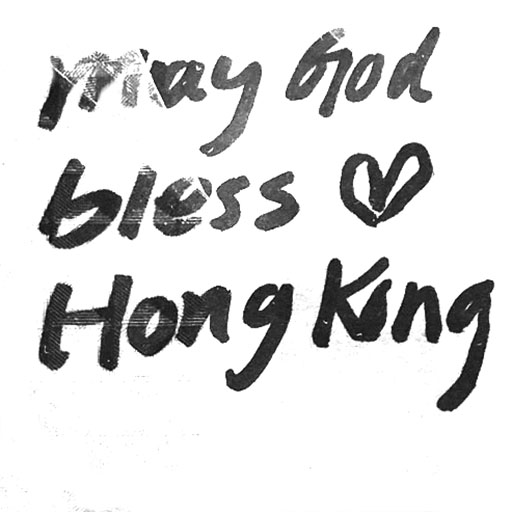 may God
bless ♡
Hong Kong